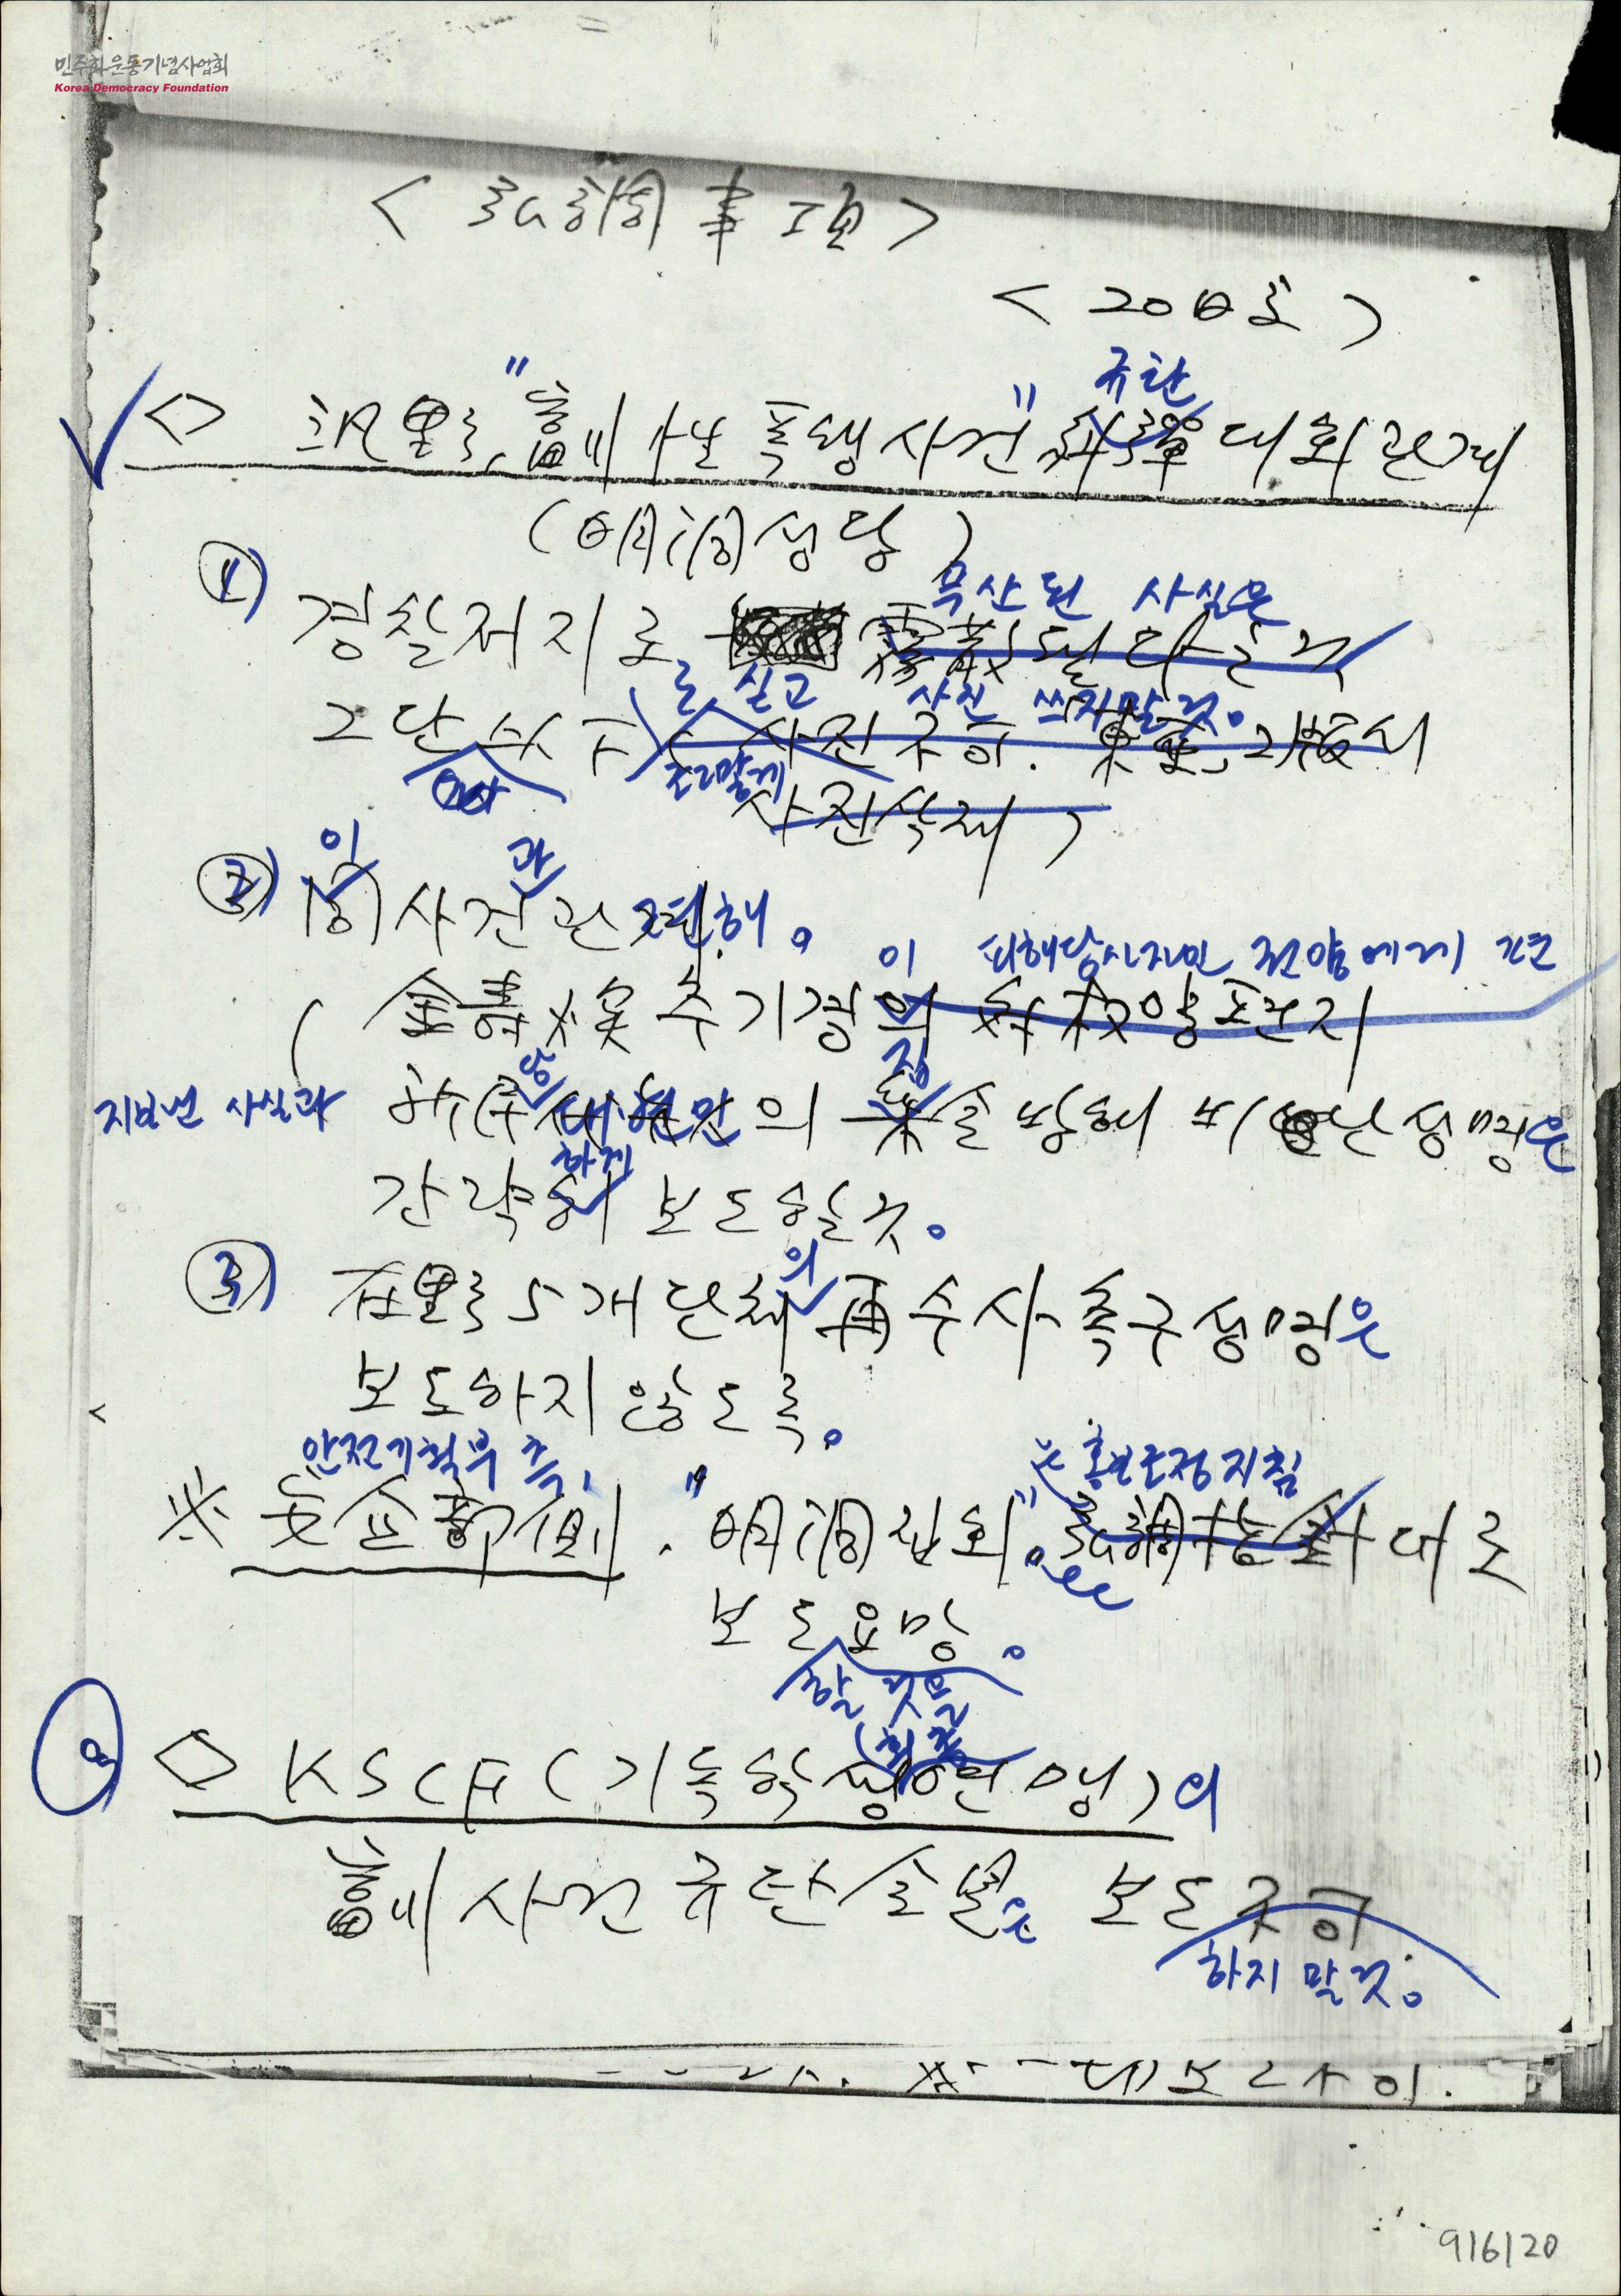 민주화운동기념사업회
Korea Democracy Foundation
< 弘調事項 >
< 20日字 >
규탄
◇ 汎野, "警 성폭행사건" 糾彈대회 관계
(明洞성당)
무산된 사실은
① 경찰저지로 霧散됐다는 것
를 싣고 사진 쓰지말것。
2단 사진 不可. 東亞, 2版서
조그맣게
사진삭제)
이 과
② 同 사건 관 련해。
이 피해당사자인 권양에게 건
( 金壽煥 추기경의 對 權양 편지
당 정
지보낸 사실과 新民 대변인의 집회방해 비난성명은
하게
간략히 보도할것。
의
③ 在野 5개 단체 再수사 촉구성명은
보도하지 않도록。
안전기획부 측, 는 홍보조정지침
※ 安企部側. "明洞집회"。弘調 대로
보도요망。
할 것을
◇ KSCF(기독학생연맹)의
警 사건 규탄 은 보도 不可.
하지 말것。
916120